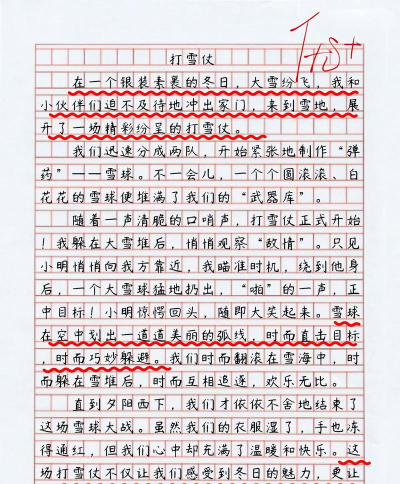 打雪仗
在一个银装素裹的冬日，大雪纷飞，我和
小伙伴们迫不及待地冲出家门，来到雪地，展
开了一场精彩纷呈的打雪仗。
我们迅速分成两队，开始紧张地制作“弹
药”——雪球。不一会儿，一个个圆滚滚、白
花花的雪球便堆满了我们的“武器库”。
随着一声清脆的口哨声，打雪仗正式开始
！我躲在大雪堆后，悄悄观察“敌情”。只见
小明悄悄向我方靠近，我瞄准时机，绕到他身
后，一个大雪球猛地扔出，“啪”的一声，正
中目标！小明惊愕回头，随即大笑起来。雪球
在空中划出一道道美丽的弧线，时而直击目标
，时而巧妙躲避。我们时而翻滚在雪海中，时
而躲在雪堆后，时而互相追逐，欢乐无比。
直到夕阳西下，我们才依依不舍地结束了
这场雪球大战。虽然我们的衣服湿了，手也冻
得通红，但我们心中却充满了温暖和快乐。这
场打雪仗不仅让我们感受到冬日的魅力，更让